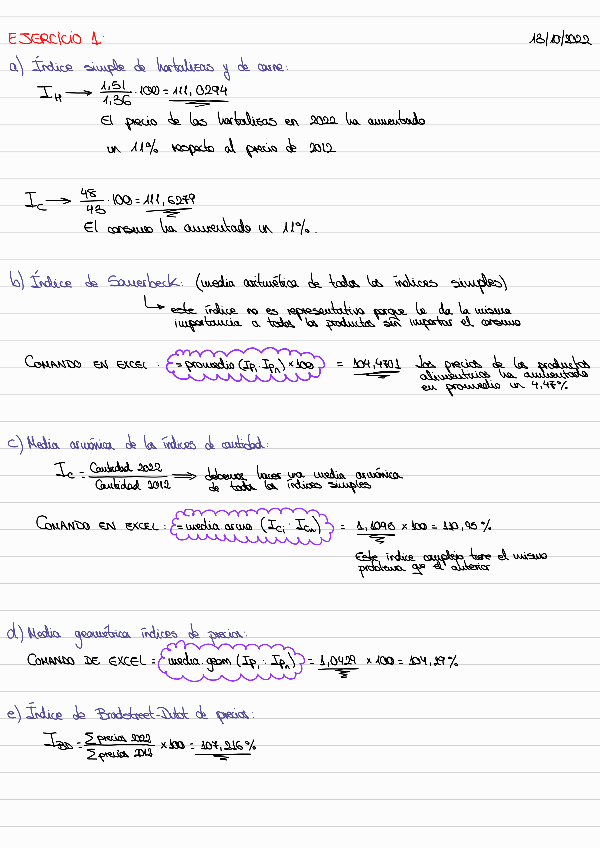 EJERCICIO 1:
13/10/2022
a) Índice simple de hortalizas y de carne:
I_H → 1,51 / 1,36 · 100 = 111,0294
El precio de las hortalizas en 2022 ha aumentado
un 11% respecto al precio de 2012
I_C → 48 / 43 · 100 = 111,6279
El consumo ha aumentado un 11%.
b) Índice de Sauerbeck: (media aritmética de todos los índices simples)
↳ este índice no es representativo porque le da la misma
importancia a todos los productos sin importar el consumo
COMANDO EN EXCEL: = promedio (Ip₁ : Ipₙ) × 100 = 104,4701
los precios de los productos
alimenticios ha aumentado
en promedio un 4,47%
c) Media armónica de los índices de cantidad:
I_C = Cantidad 2022 / Cantidad 2012 → debemos hacer una media armónica
de todos los índices simples
COMANDO EN EXCEL: = media.armo (I_C₁ : I_Cₙ) = 1,1095 × 100 = 110,95 %
Este índice complejo tiene el mismo
problema que el anterior
d) Media geométrica índices de precios:
COMANDO DE EXCEL = media.geom (Ip₁ : Ipₙ) = 1,0429 × 100 = 104,29 %
e) Índice de Bradstreet-Dutot de precios:
I_BD = Σ precios 2022 / Σ precios 2012 × 100 = 107,216 %